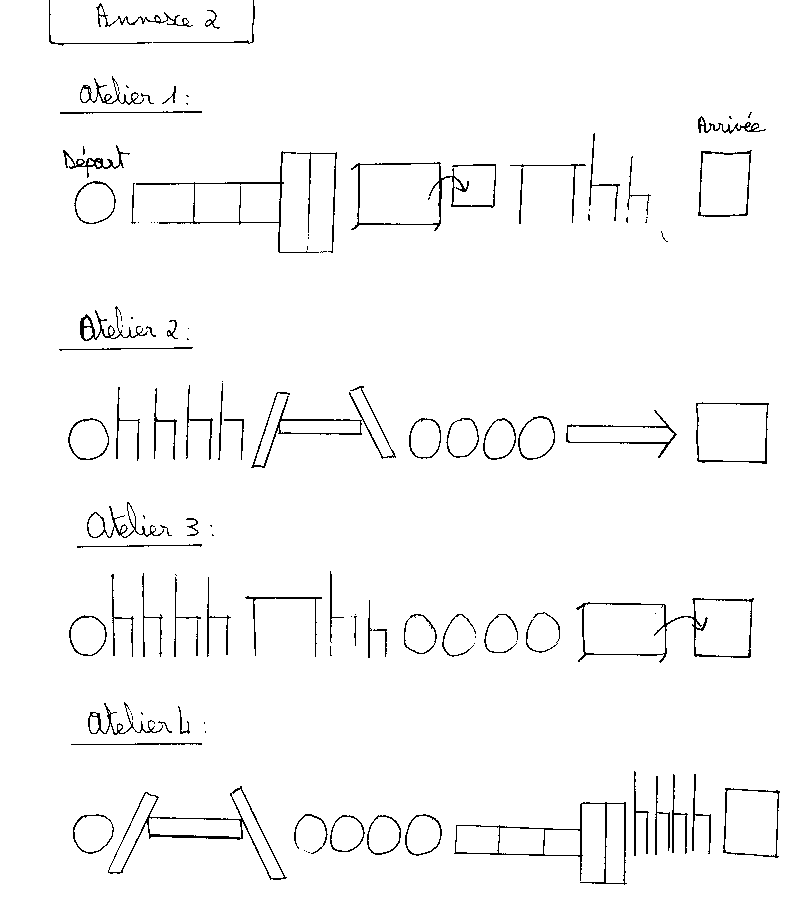 Annexe 2
Atelier 1:
Départ
Arrivée
Atelier 2:
Atelier 3:
Atelier 4: